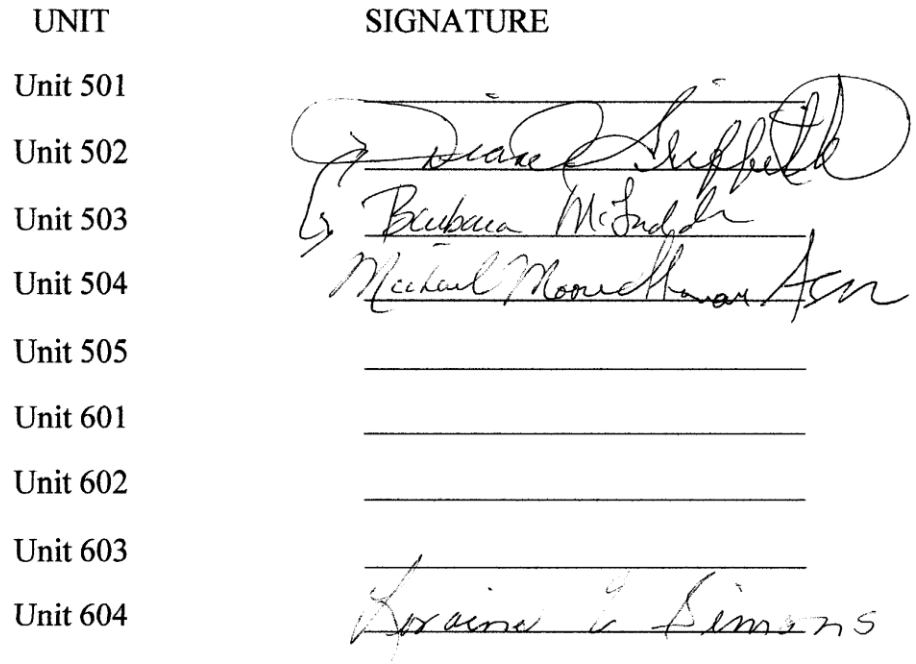 UNIT SIGNATURE
Unit 501
Unit 502 Diane Griffith
Unit 503 Barbara
Unit 504 Michael
Unit 505
Unit 601
Unit 602
Unit 603
Unit 604 Loraine Simons